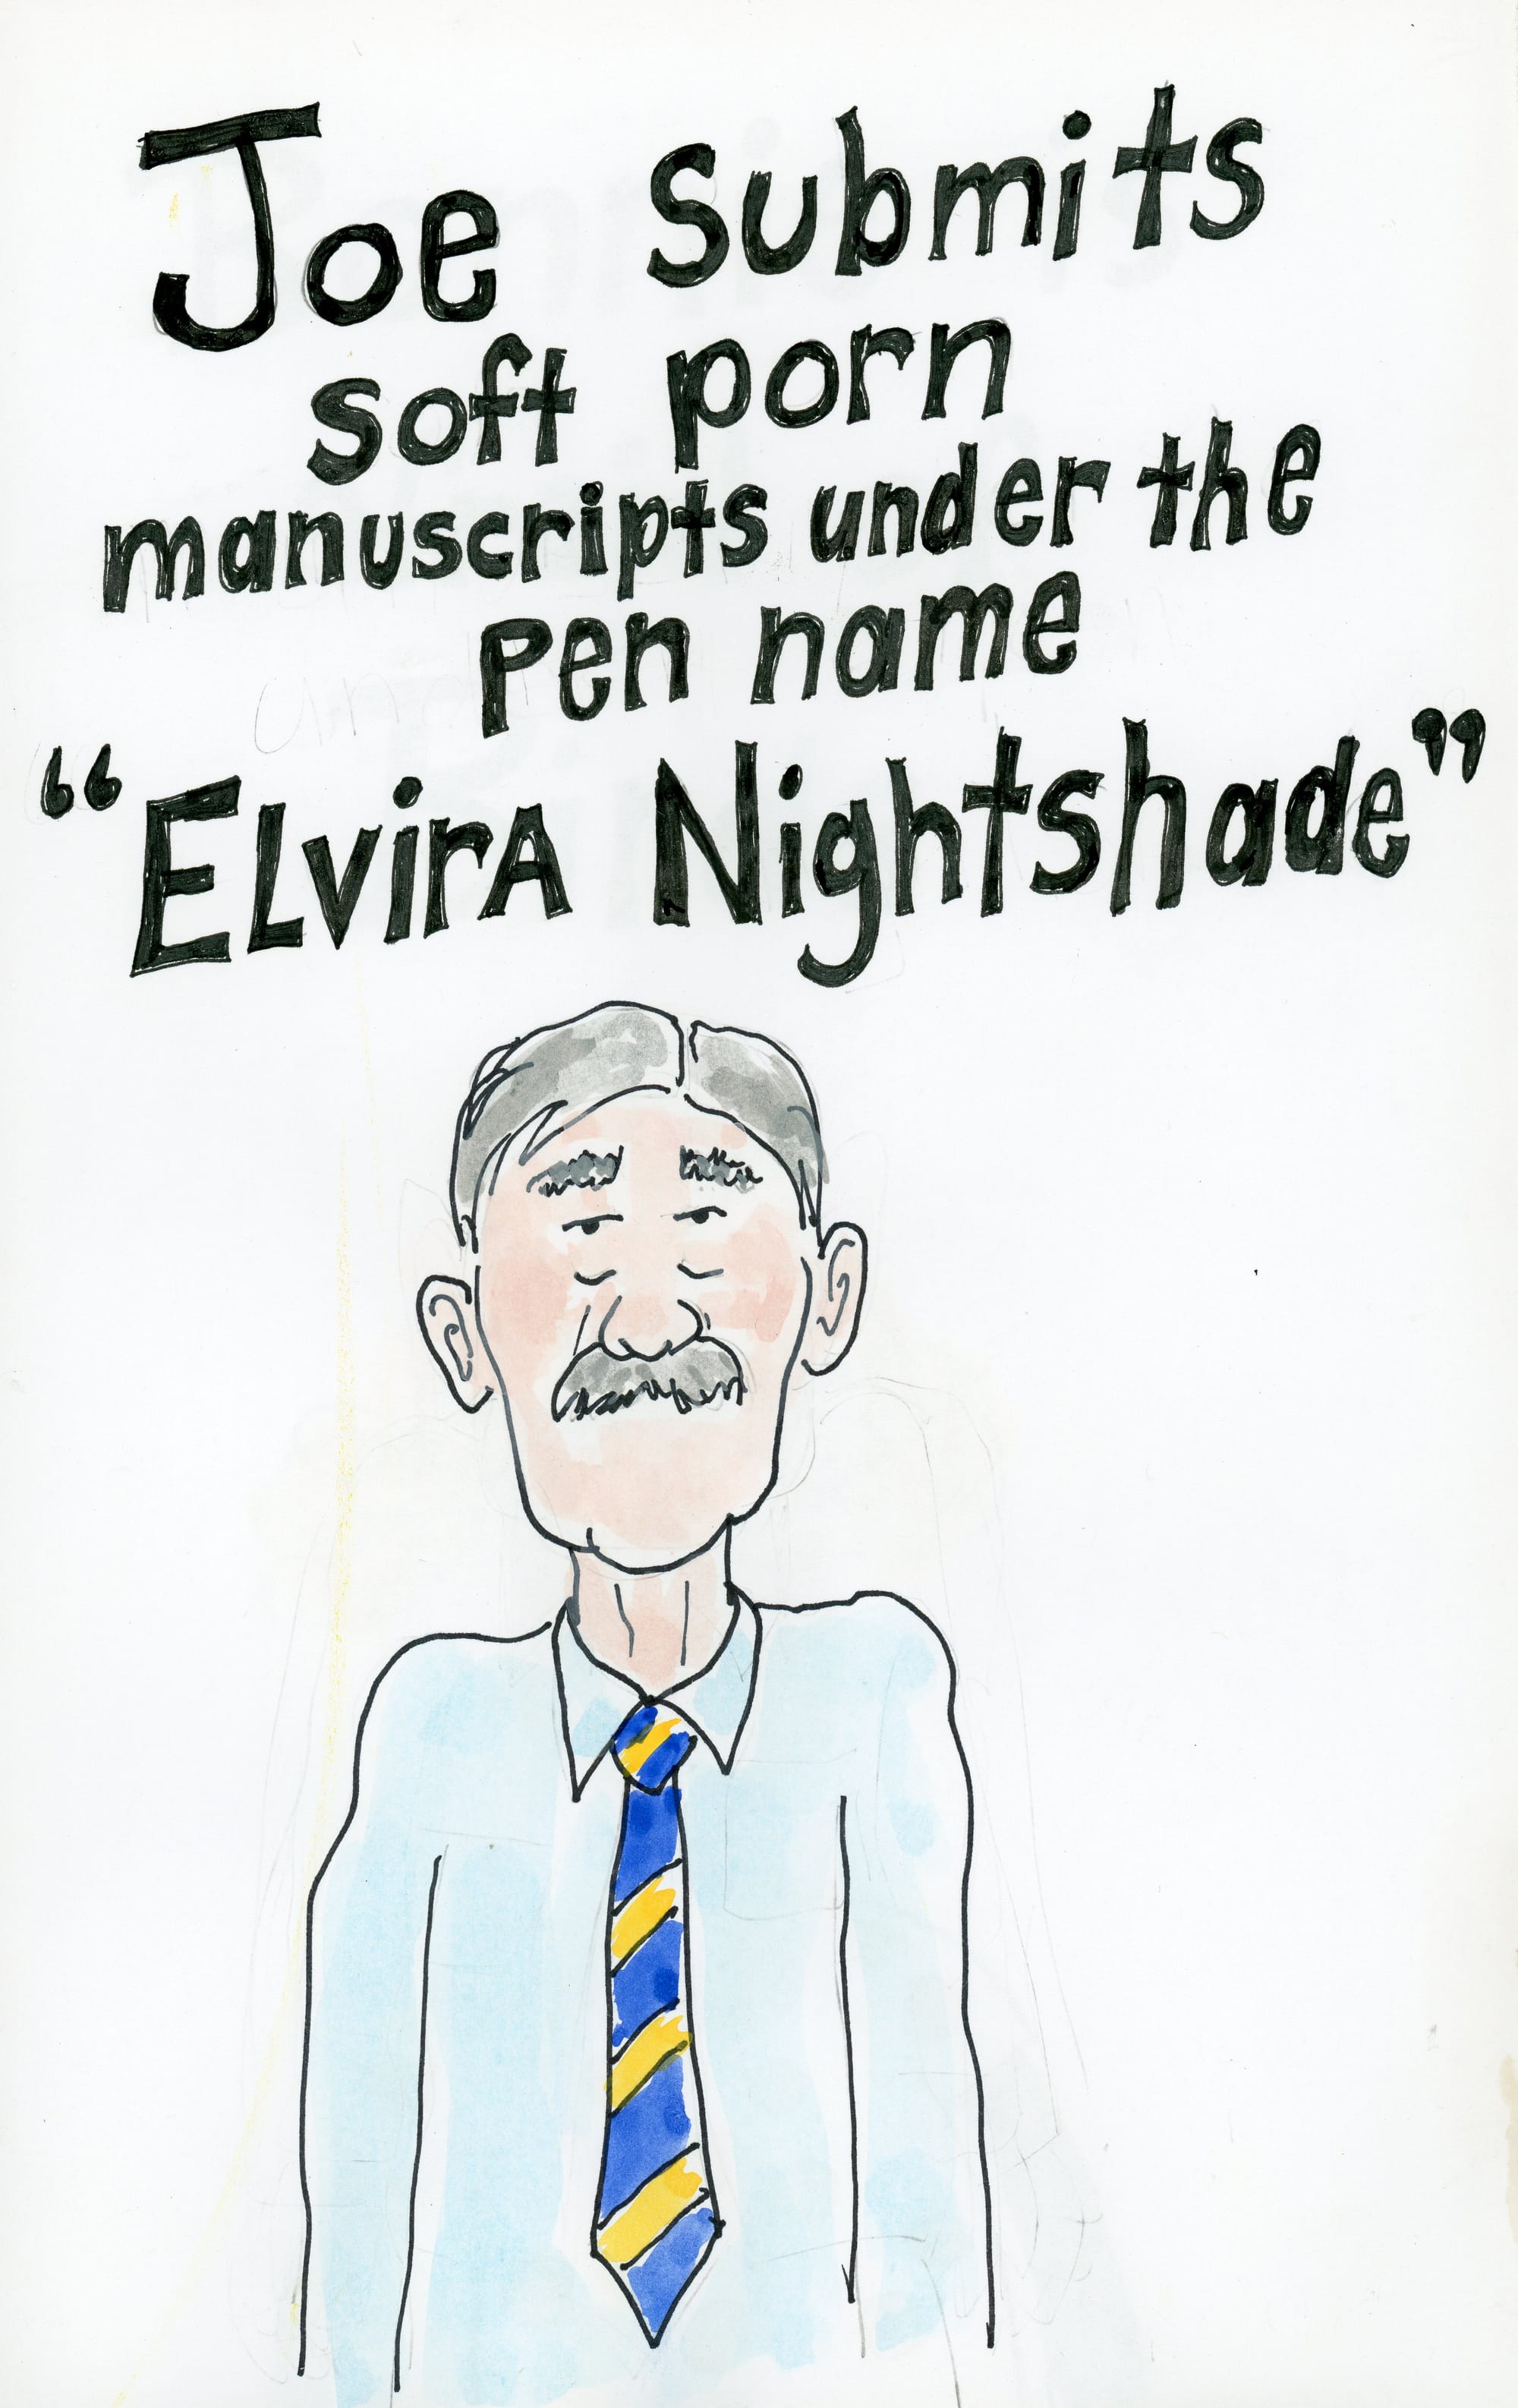 Joe submits
soft porn
manuscripts under the
pen name
“ELvirA Nightshade”